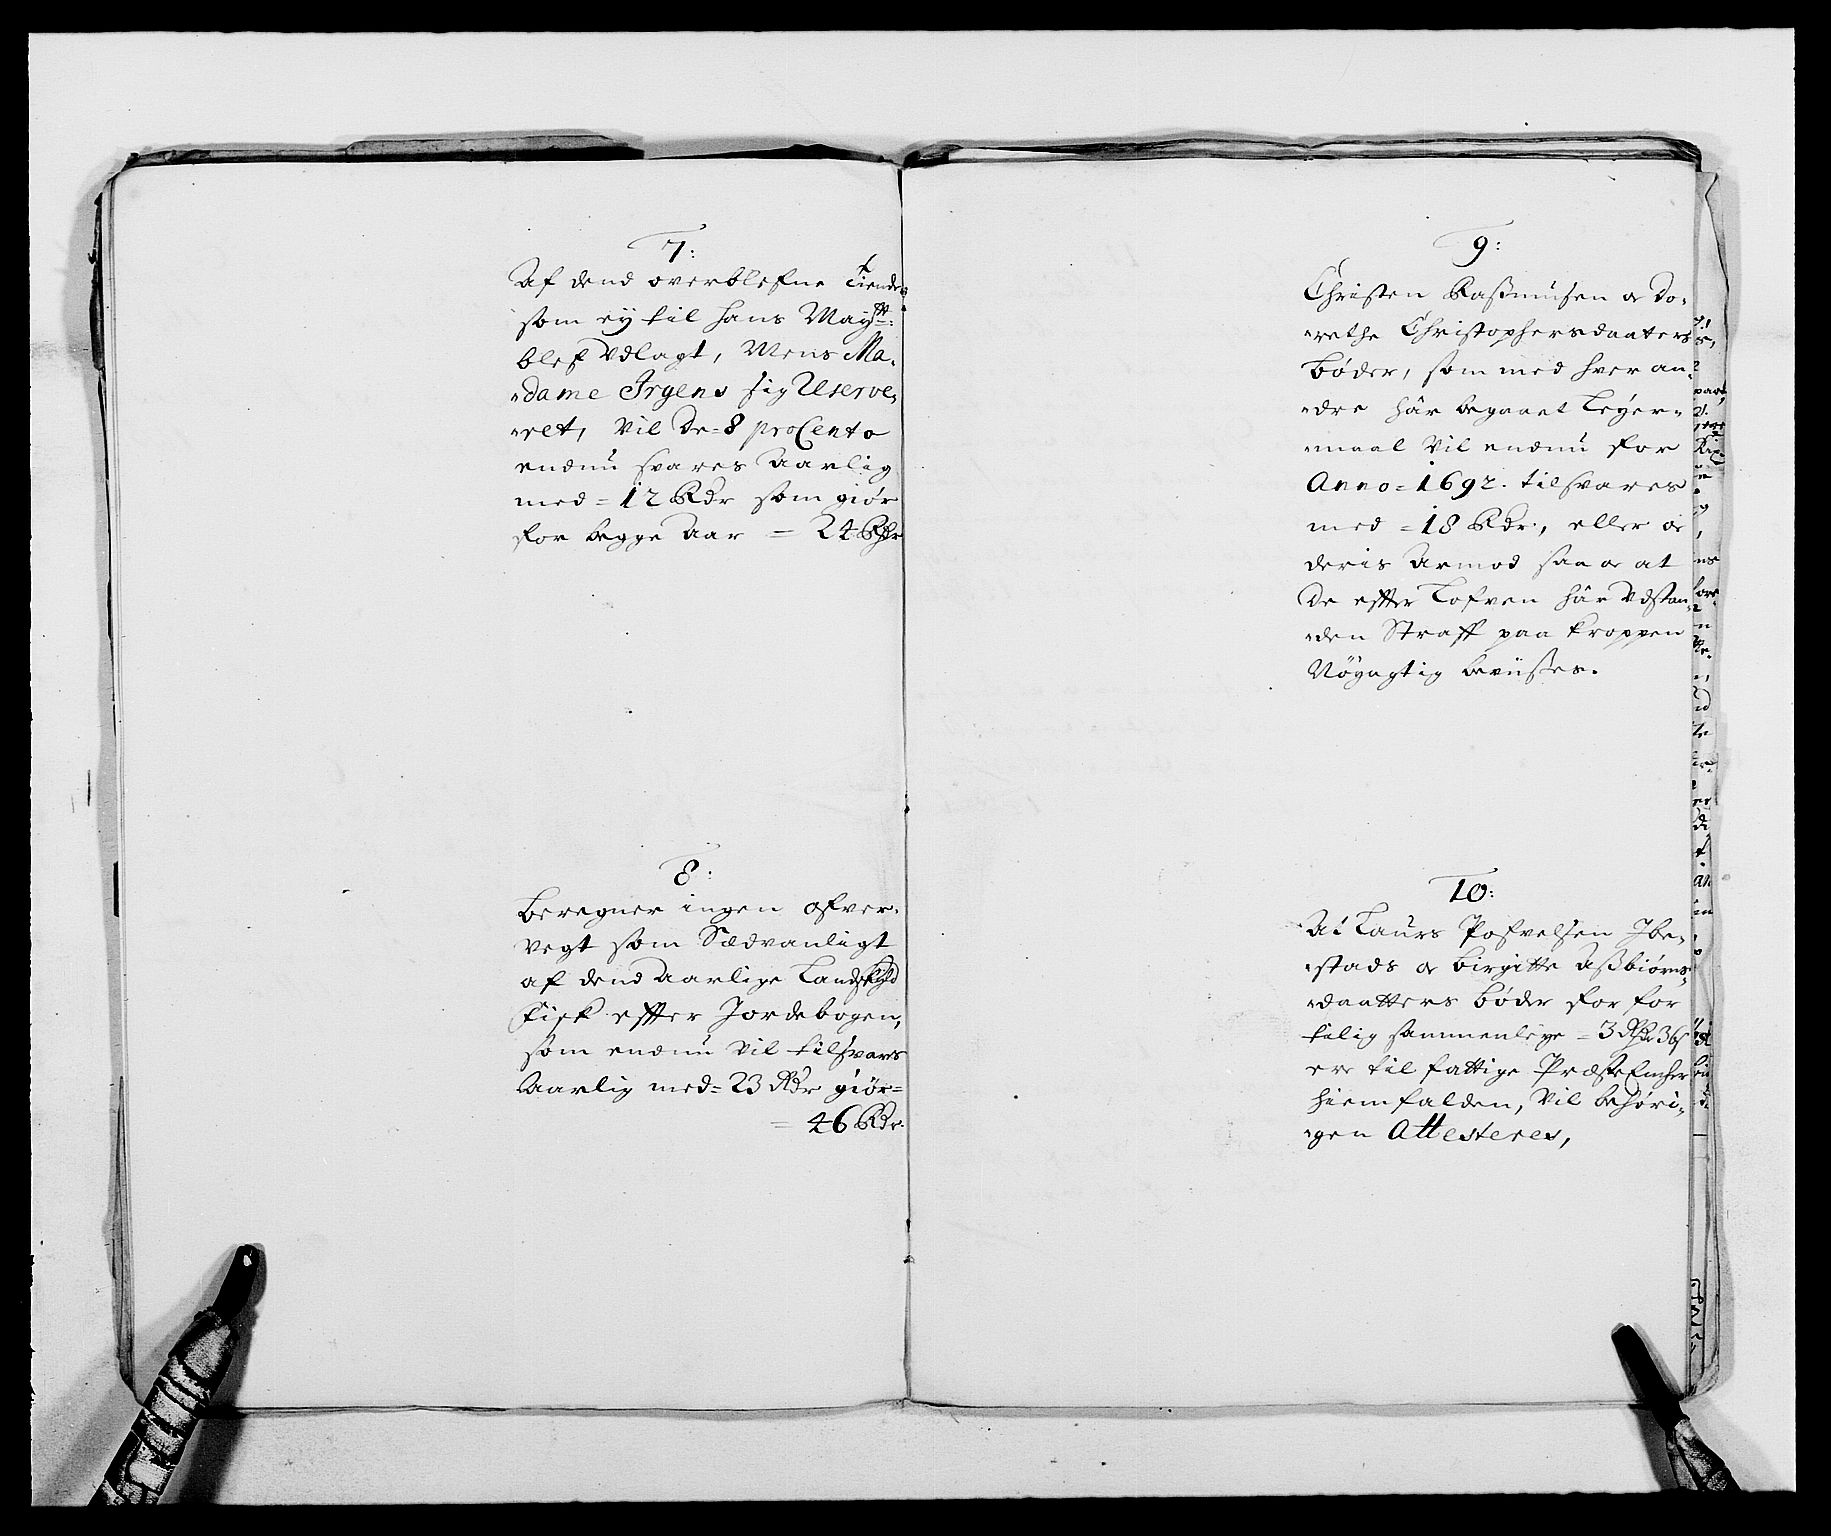 7:
Af dend overblefne Tiende
som ey til hans Mayᵗᵗ:
blef Vdlagt, Mens Ma-
-dame Irgens sig Reserve-
-ret, Vil De = 8 pro Cento
endnu svares Aarlig
med = 12 Rdr som giør
for begge Aar = 24 Rdr
8:
Beregner ingen ofver-
vegt som Sædvanligt
af dend Aarlige Landskyld
Fisk effter Jordebogen,
som endnu Vil tilsvares
Aarlig med = 23 Rdr giør =
= 46 Rdr.
9:
Christen Rasmusen oc Do-
-rethe Christophersdaaters
Bøder, som med hver an-
-dre hår begaaet Leyer-
-maal Vil endnu for
Anno = 1692. tilsvares
med = 18 Rdr., eller oc
deris Armod saa oc at
De effter Lofven hår Vdstan-
-den Straff paa Kroppen
Nöyagtig beviises.
10:
At Laurs Pofvelsen Ibe-
-stads oc Birgitte Asbiørns-
-daatters bøder for for
tilig sammenleye = 3 Rdr 36 s
ere til fattige Præste Encher
hiemfalden, Vil behøri-
-gen Attesteres,